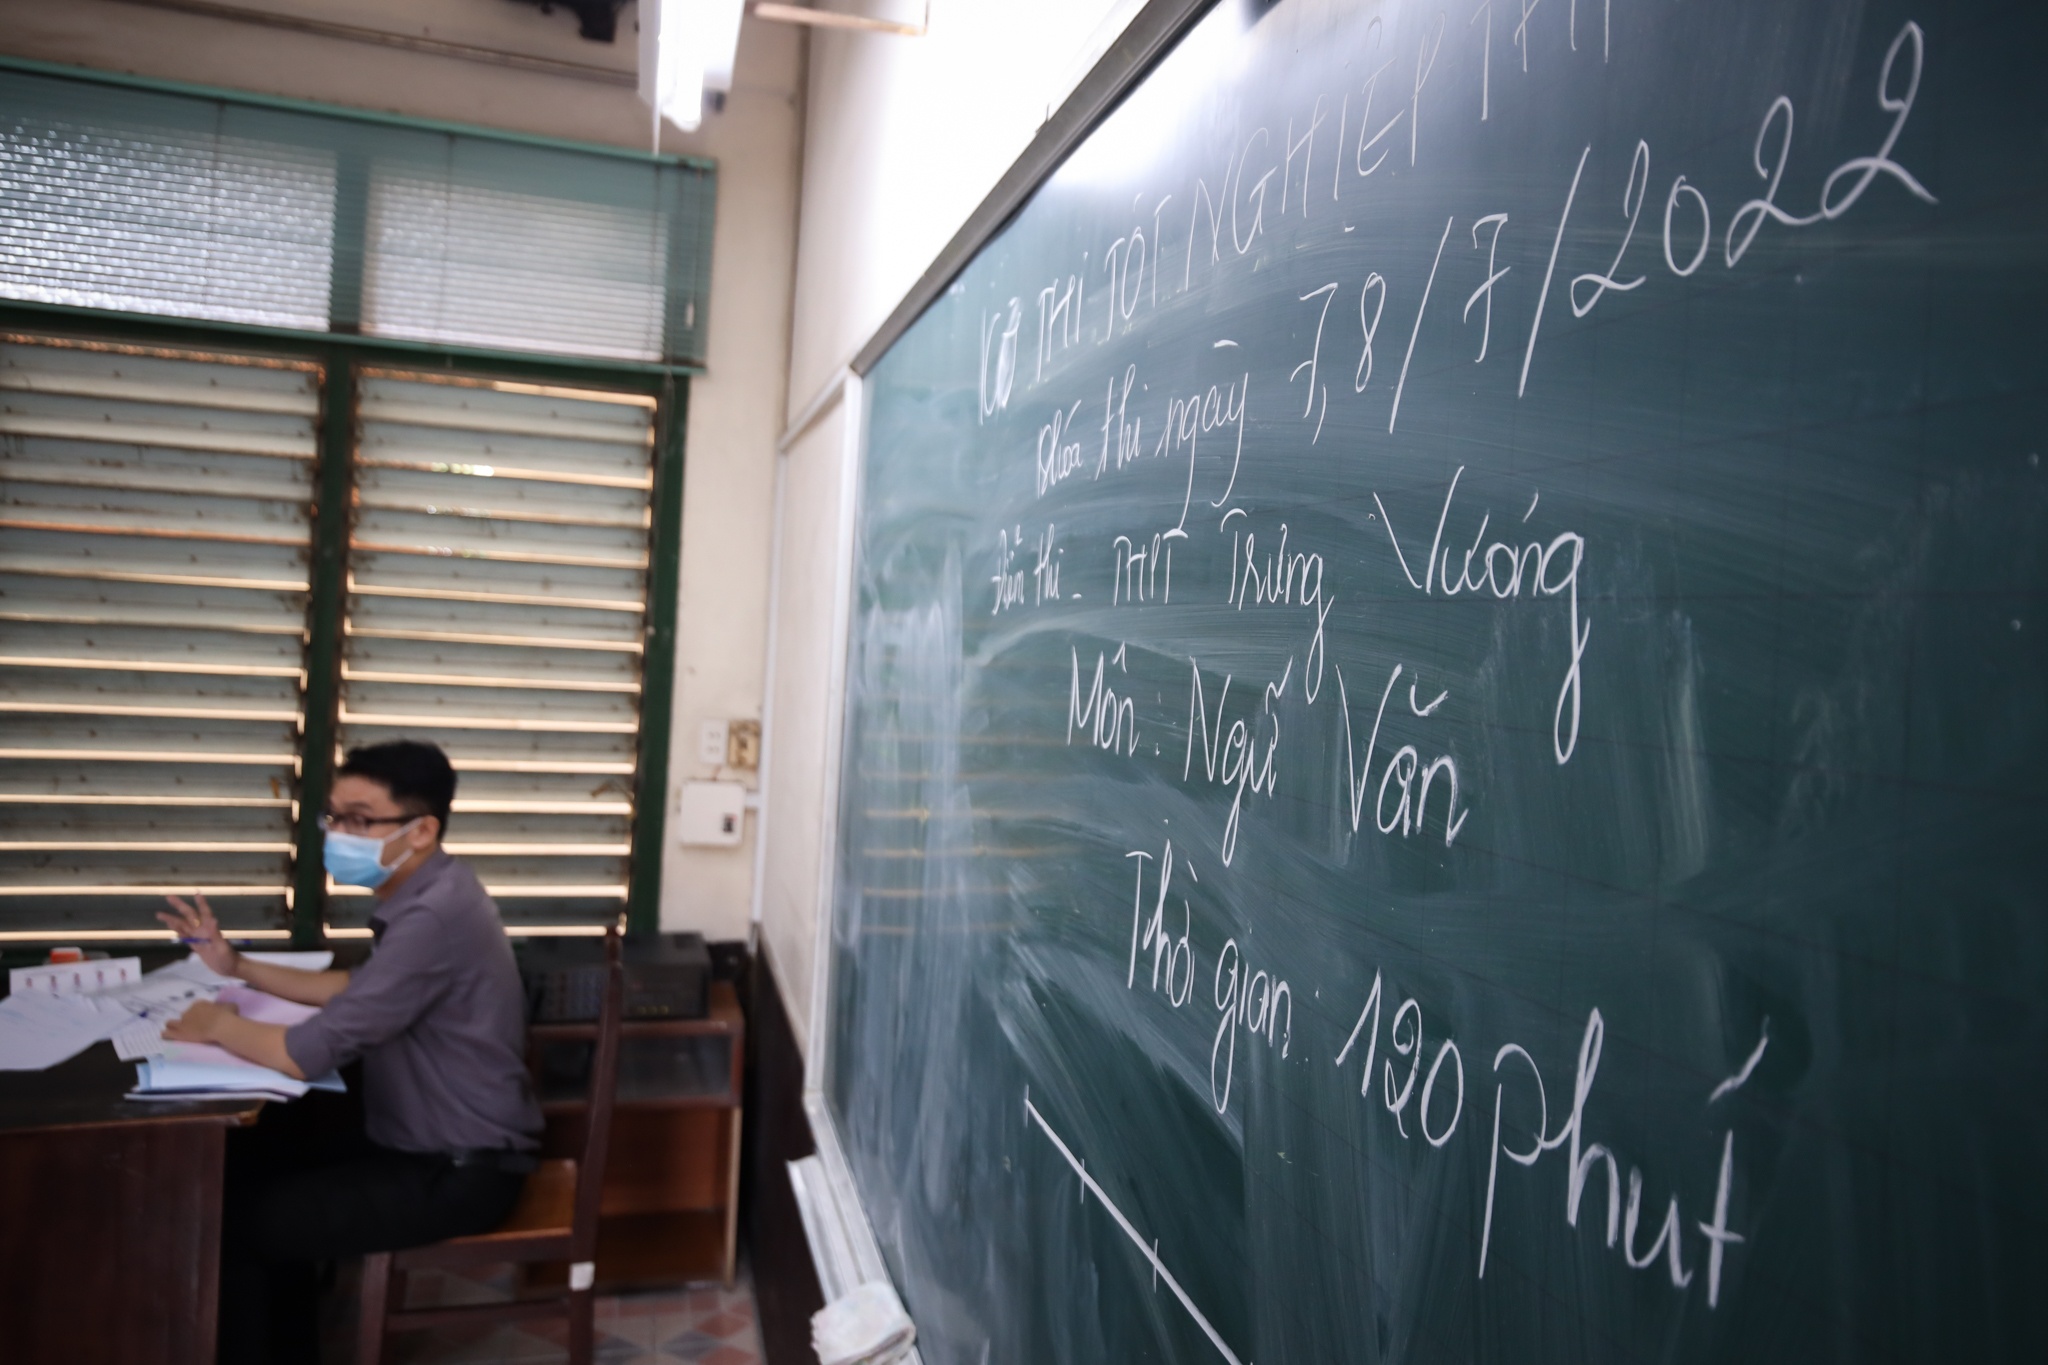 KỲ THI TỐT NGHIỆP TH
Khóa thi ngày 7,8/7/2022
Điểm thi - THPT Trưng Vương
Môn: Ngữ Văn
Thời gian: 120 phút